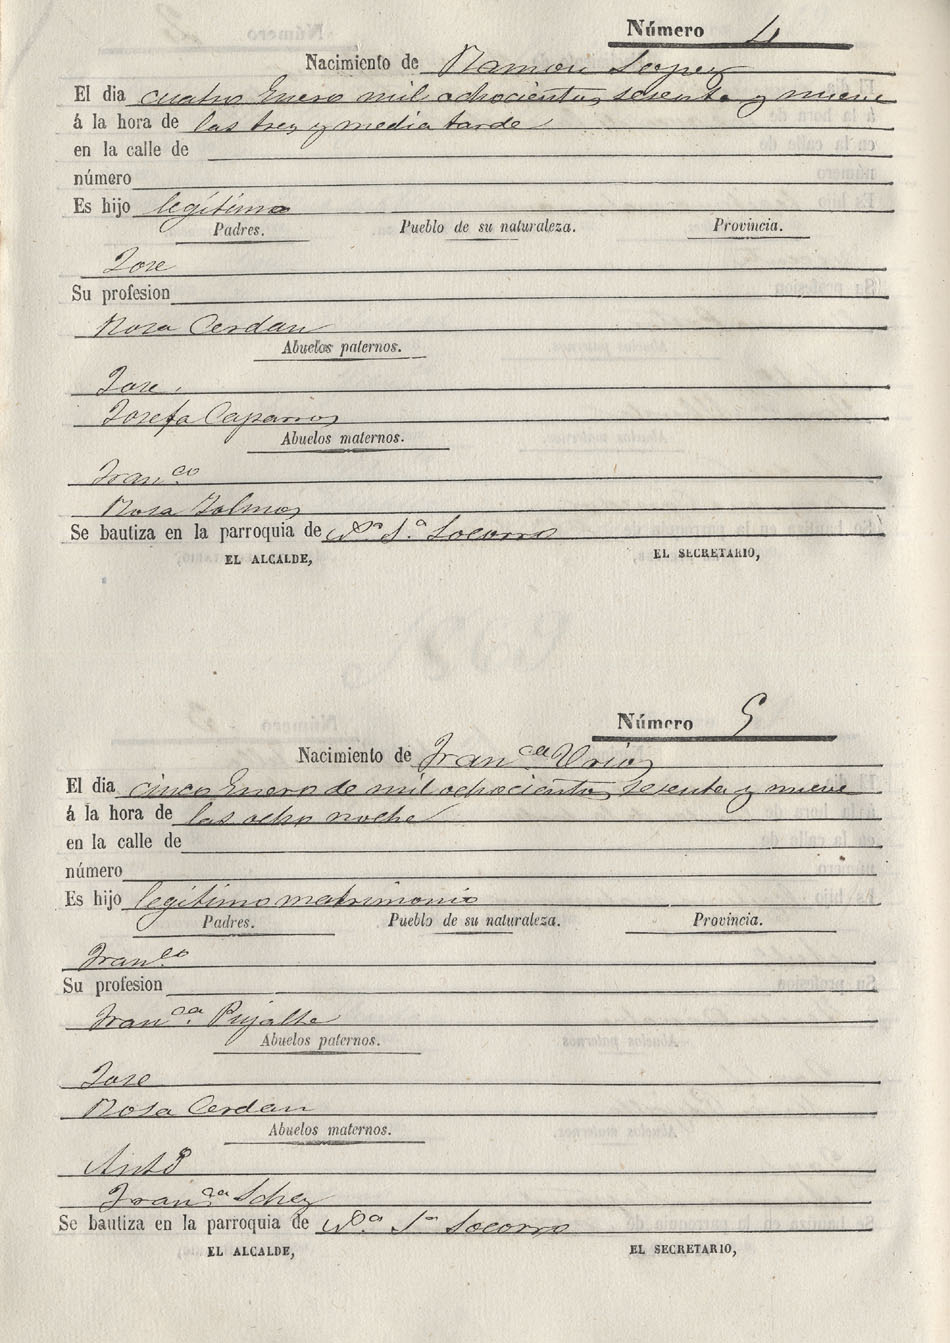 Número 4
Nacimiento de Ramon Lopez
El dia cuatro Enero mil ochocientos sesenta y nueve
á la hora de las tres y media tarde
en la calle de
número
Es hijo legítimo
Padres. Pueblo de su naturaleza. Provincia.
Jose
Su profesion
Rosa Cerdan
Abuelos paternos.
Jose
Josefa Caparros
Abuelos maternos.
Fran.co
Rosa
Se bautiza en la parroquia de Na. Sa. Socorro
EL ALCALDE, EL SECRETARIO,
1869
Número 5
Nacimiento de Fran.ca Urios
El dia cinco Enero de mil ochocientos sesenta y nueve
á la hora de las ocho noche
en la calle de
número
Es hijo legítimo matrimonio
Padres. Pueblo de su naturaleza. Provincia.
Fran.co
Su profesion
Fran.ca Pujalte
Abuelos paternos.
Jose
Rosa Cerdan
Abuelos maternos.
Anto
Fran.ca Schez
Se bautiza en la parroquia de Na. Sa. Socorro
EL ALCALDE, EL SECRETARIO,